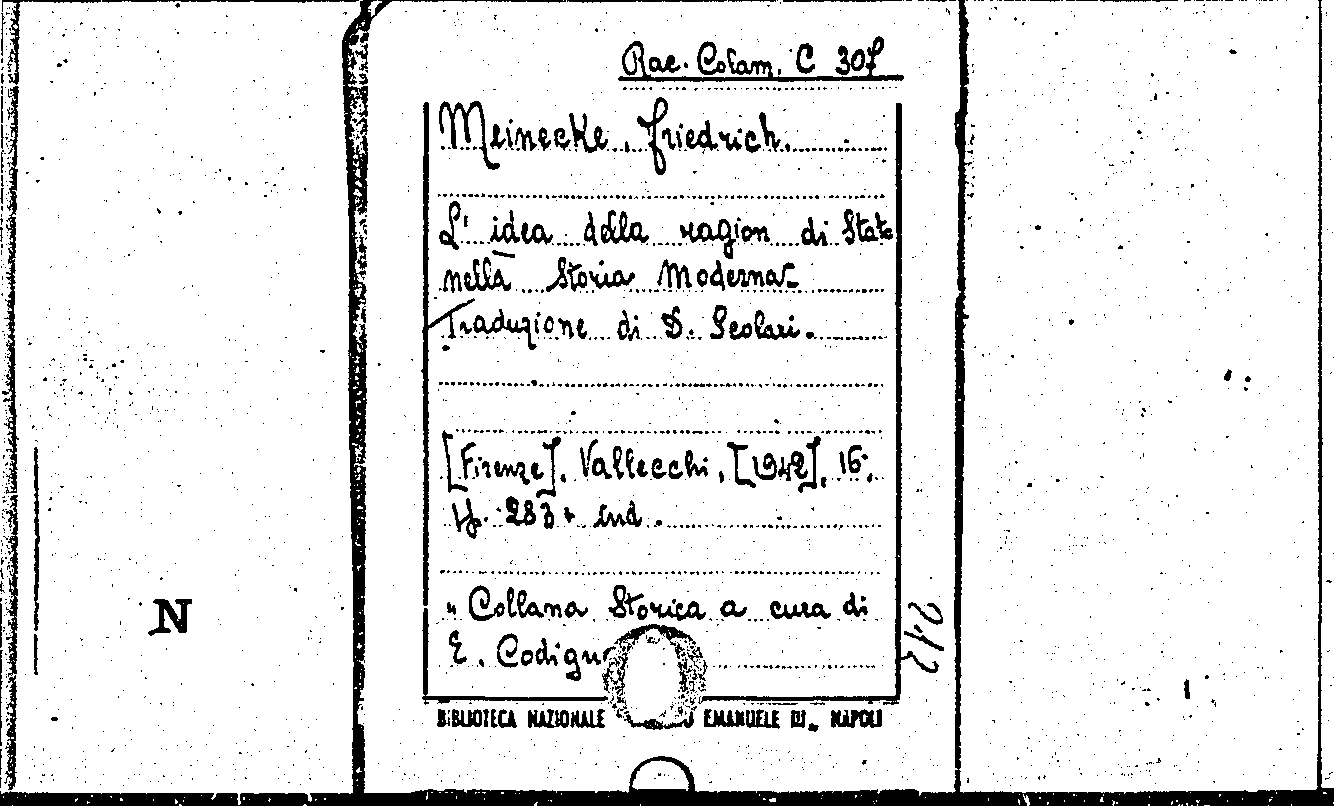 Rac. Colam. C 307
Meinecke, Friedrich.
L'idea della ragion di Stato
nella Storia Moderna
Traduzione di D. Scolari.
[Firenze], Vallecchi, [1942], 16°,
pp. 283 + ind.
"Collana Storica a cura di
E. Codign
BIBLIOTECA NAZIONALE EMANUELE III NAPOLI
212
N